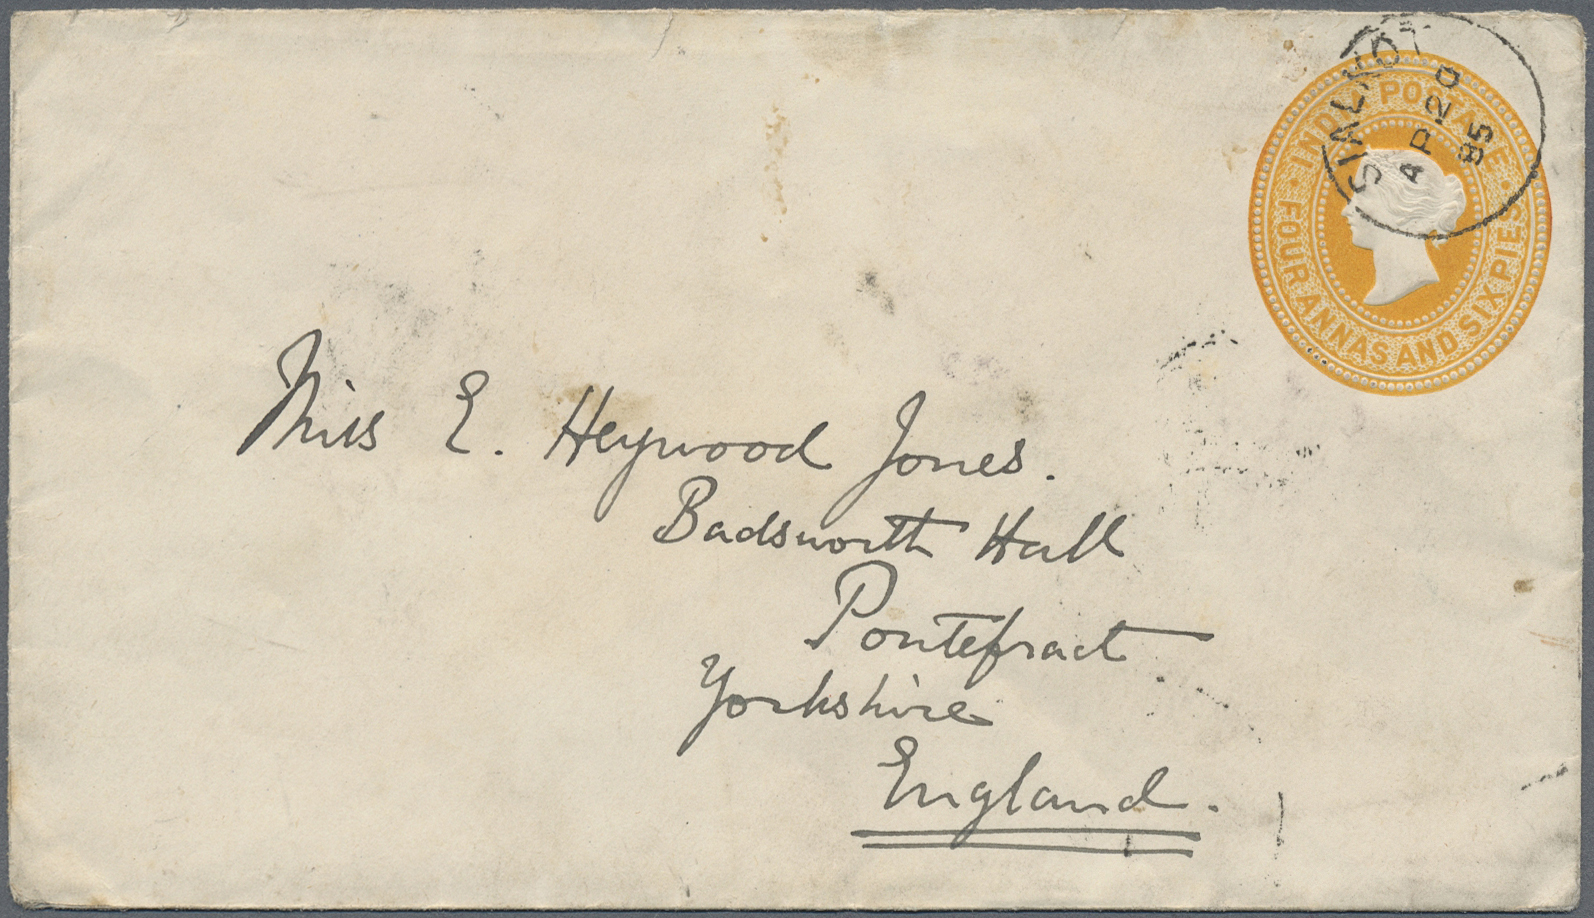 INDIA POSTAGE
FOUR ANNAS AND SIX PIES
SIALKOT
AP 20
95
Miss E. Heywood Jones.
Badsworth Hall
Pontefract
Yorkshire
England.